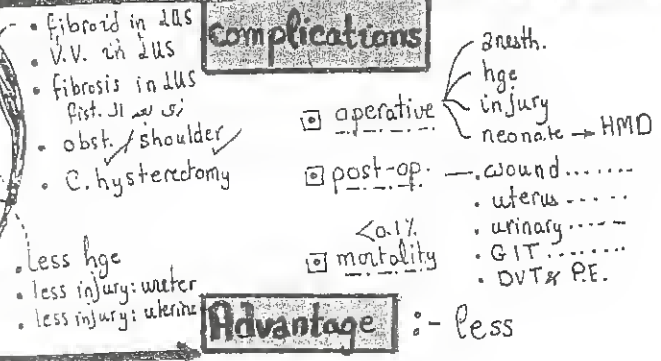 • fibroid in LUS
• V.V. in LUS
• fibrosis in LUS
زى بعد ال fist.
• obst. / shoulder
• C. hysterectomy
• less hge
• less injury: ureter
• less injury: uterine
Complications
operative
anesth.
hge
injury
neonate → HMD
post-op. — . wound.......
• uterus .....
• urinary .....
• GIT ........
• DVT & P.E.
<0.1%
mortality
Advantage :- less